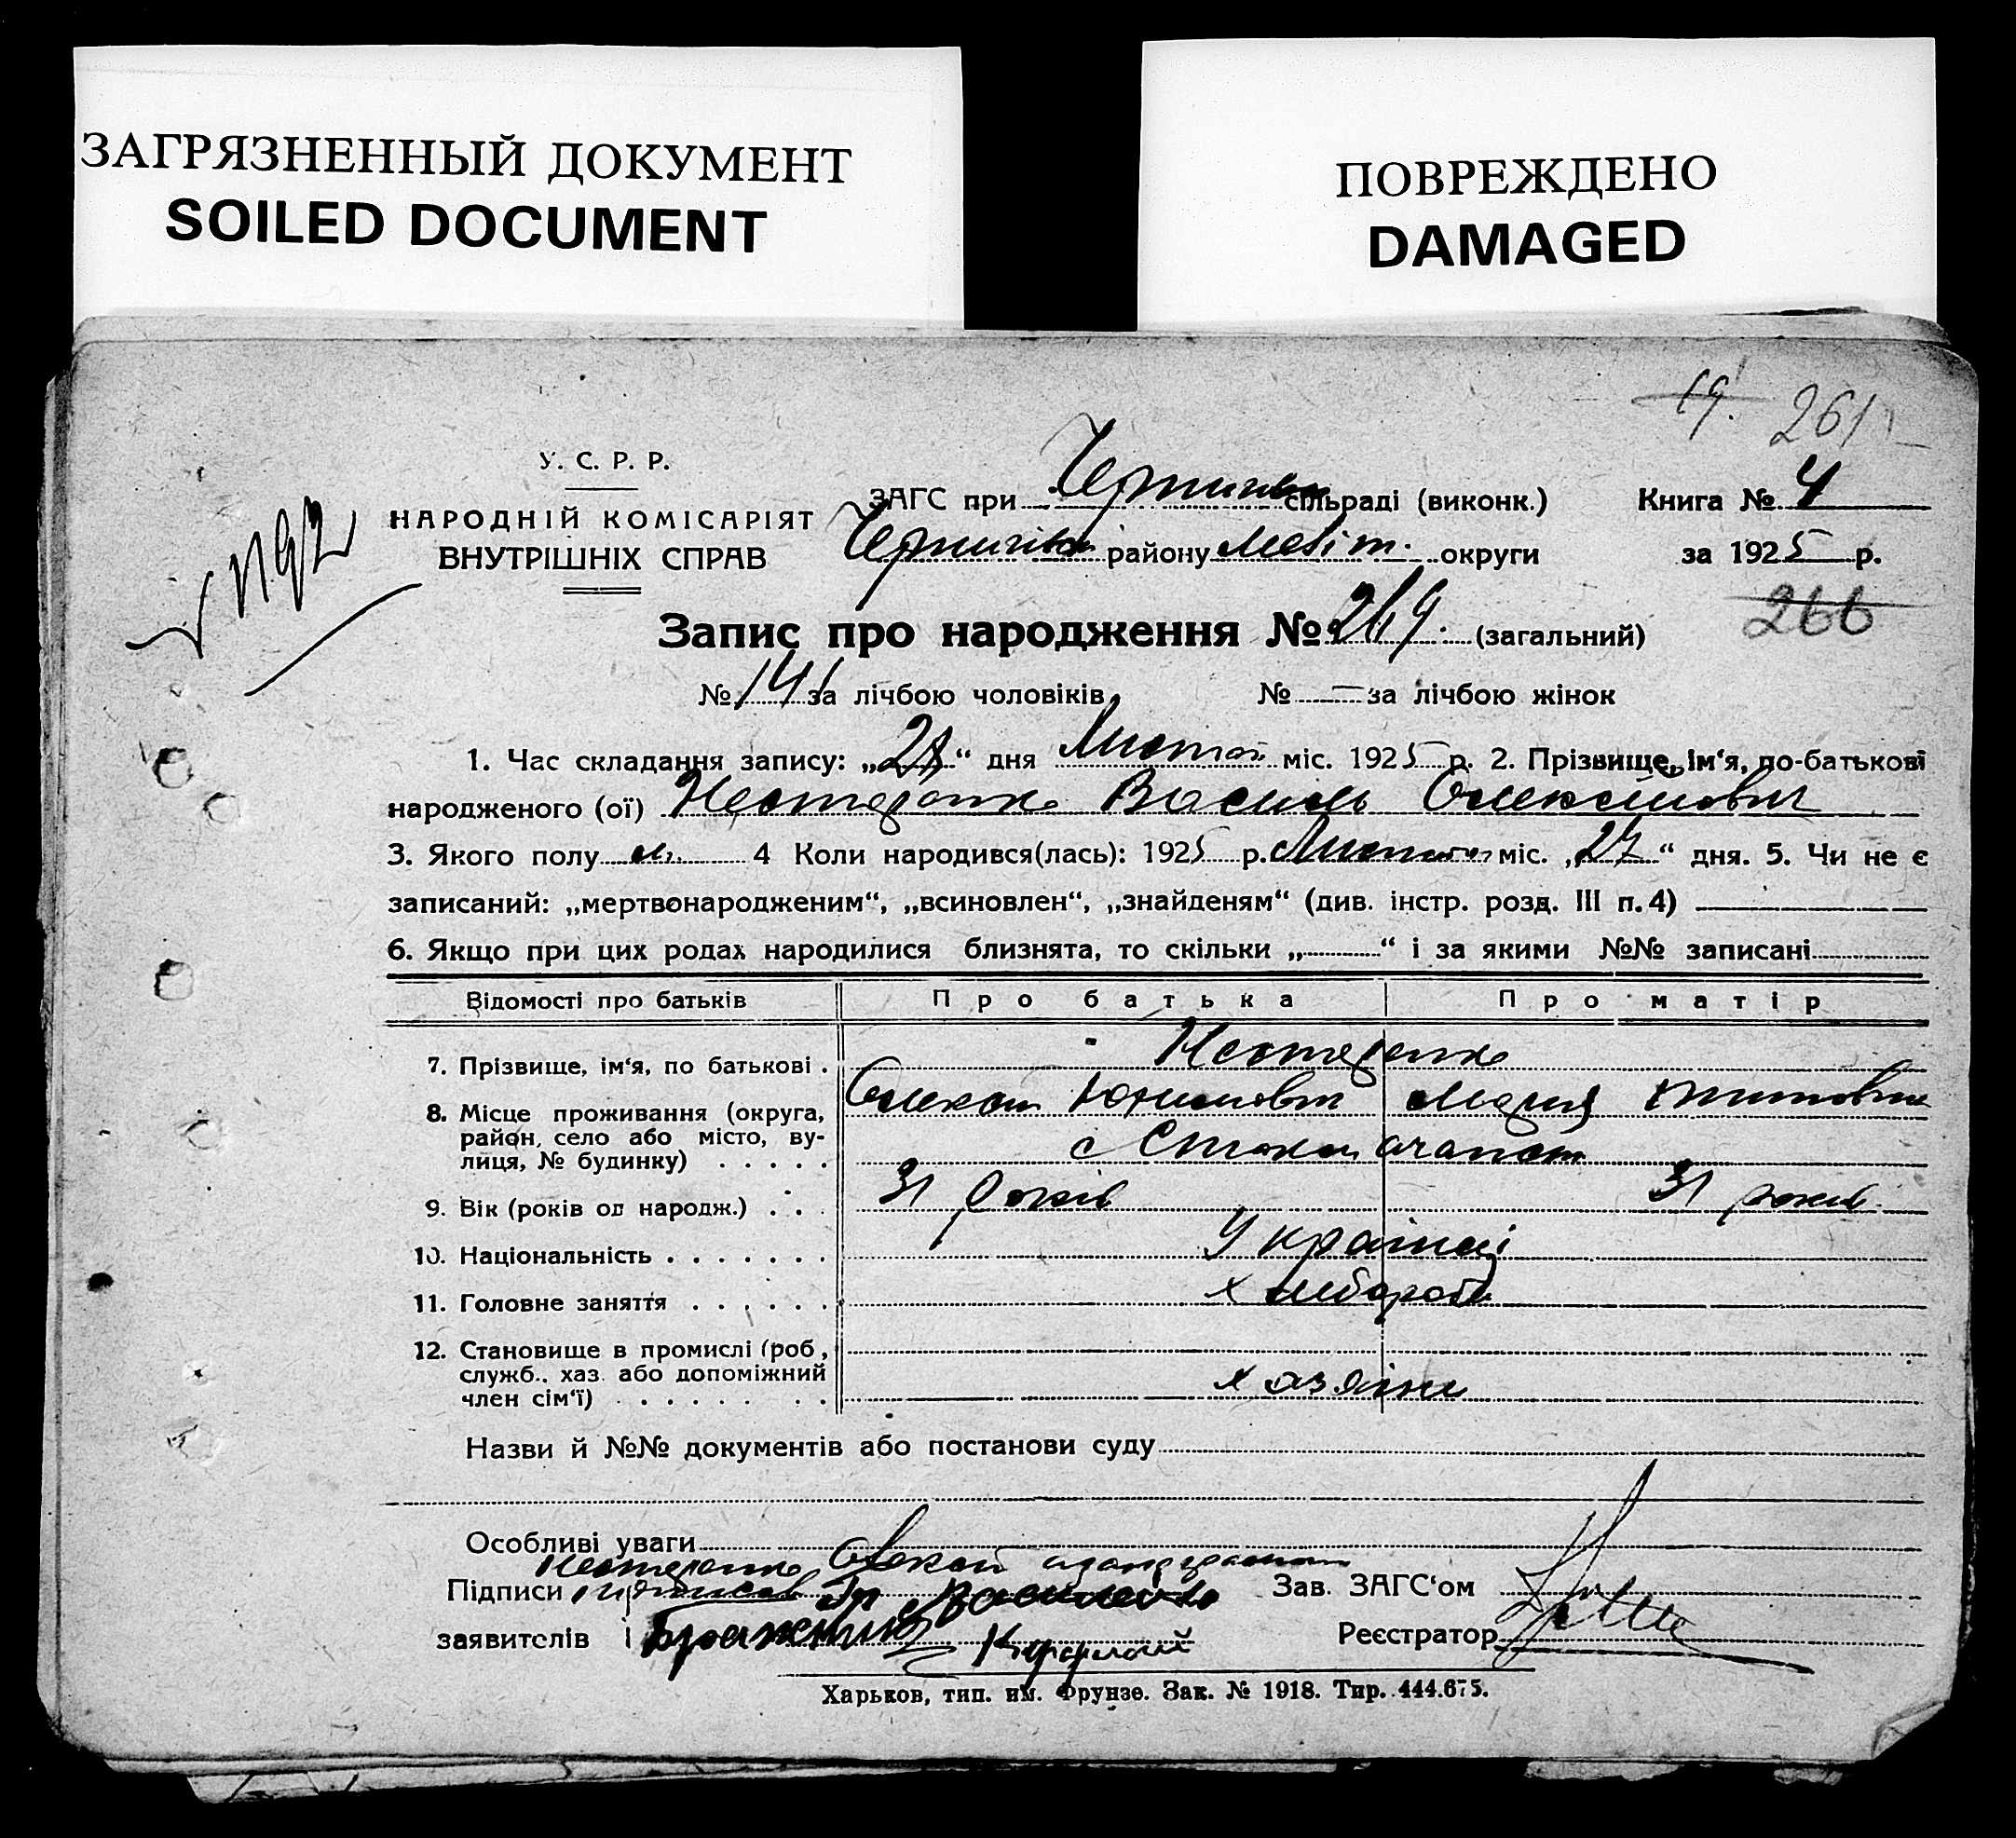 ЗАГРЯЗНЕННЫЙ ДОКУМЕНТ
SOILED DOCUMENT
ПОВРЕЖДЕНО
DAMAGED
19. 261
У. С. Р. Р.
НАРОДНІЙ КОМІСАРІЯТ
ВНУТРІШНІХ СПРАВ
ЗАГС при сільраді (виконк.) Книга № 4
району Меліт. округи за 1925 р.
266
Запис про народження № (загальний)
№ 141 за лічбою чоловіків № — за лічбою жінок
1. Час складання запису: „28“ дня міс. 1925 р. 2. Прізвище, ім‘я, по-батькові
народженого (ої) Нестеренко Василь Олексійович
3. Якого полу 4 Коли народився(лась): 1925 р. міс. „27“ дня. 5. Чи не є
записаний: „мертвонародженим“, „всиновлен“, „знайденям“ (див. інстр. розд. III п. 4)
6. Якщо при цих родах народилися близнята, то скільки „ “ і за якими №№ записані
Відомості про батьків Про батька Про матір
7. Прізвище, ім‘я, по батькові . Нестеренко
Олексій Марія
8. Місце проживання (округа,
район, село або місто, ву-
лиця, № будинку) . . . . . с
9. Вік (років од народж.) . . . 31 років 31 років
10. Національність . . . . . . . Українці
11. Головне заняття . . . . . . Хлібороби
12. Становище в промислі (роб,
служб., хаз. або допоміжний
член сім‘ї) . . . . . . . хазяіни
Назви й №№ документів або постанови суду
Особливі уваги
Нестеренко
Підписи підписав Гр Василенко Зав. ЗАГС‘ом
заявителів і Бражник Реєстратор
Харьков, тип. им. Фрунзе. Зак. № 1918. Тир. 444.675.